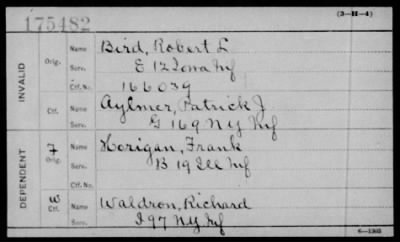 175482
(3—H—4)
INVALID
Orig.
Name Bird, Robert L
Serv. E 12 Iowa Inf
Ctf. No. 166039
Ctf.
Name Aylmer, Patrick J
Serv. G 169 N Y Inf
DEPENDENT
F
Orig.
Name Horigan, Frank
Serv. B 19 Ill Inf
Ctf. No.
W
Ctf.
Name Waldron, Richard
Serv. I 97 N.Y. Inf
6—1303